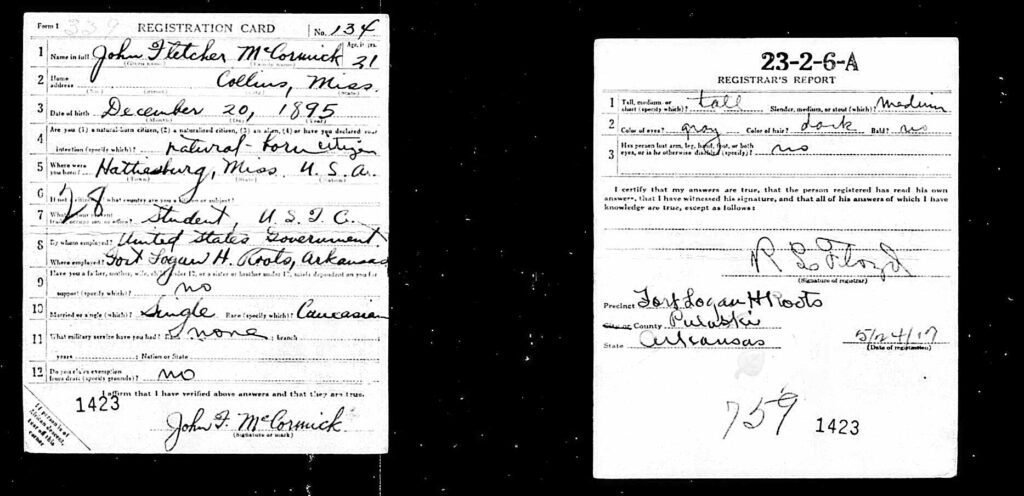 Form 1 339 REGISTRATION CARD No. 134
1 Name in full John Fletcher McCormick Age, in yrs. 21
(Given name) (Family name)
2 Home address Collins, Miss.
(No.) (Street) (City) (State)
3 Date of birth December 20, 1895
(Month) (Day) (Year)
4 Are you (1) a natural-born citizen, (2) a naturalized citizen, (3) an alien, (4) or have you declared your
intention (specify which)? natural-born citizen
5 Where were you born? Hattiesburg, Miss. U.S.A.
(Town) (State) (Nation)
6 If not a citizen, of what country are you a citizen or subject?
28
7 What is your present trade, occupation, or office? Student, U.S.T.C.
8 By whom employed? United States Government
Where employed? Fort Logan H. Roots, Arkansas
9 Have you a father, mother, wife, child under 12, or a sister or brother under 12, solely dependent on you for
support (specify which)? no
10 Married or single (which)? Single Race (specify which)? Caucasian
11 What military service have you had? none ; branch
years ; Nation or State
12 Do you claim exemption from draft (specify grounds)? no
I affirm that I have verified above answers and that they are true.
1423
John F. McCormick
(Signature or mark)
If person is of African descent, tear off this corner
23-2-6-A
REGISTRAR'S REPORT
1 Tall, medium, or short (specify which)? tall Slender, medium, or stout (which)? medium
2 Color of eyes? gray Color of hair? dark Bald? no
3 Has person lost arm, leg, hand, foot, or both
eyes, or is he otherwise disabled (specify)? no
I certify that my answers are true, that the person registered has read his own
answers, that I have witnessed his signature, and that all of his answers of which I have
knowledge are true, except as follows:
R L Floyd
(Signature of registrar)
Precinct Fort Logan H Roots
City or County Pulaski
State Arkansas 5/24/17
(Date of registration)
759 1423